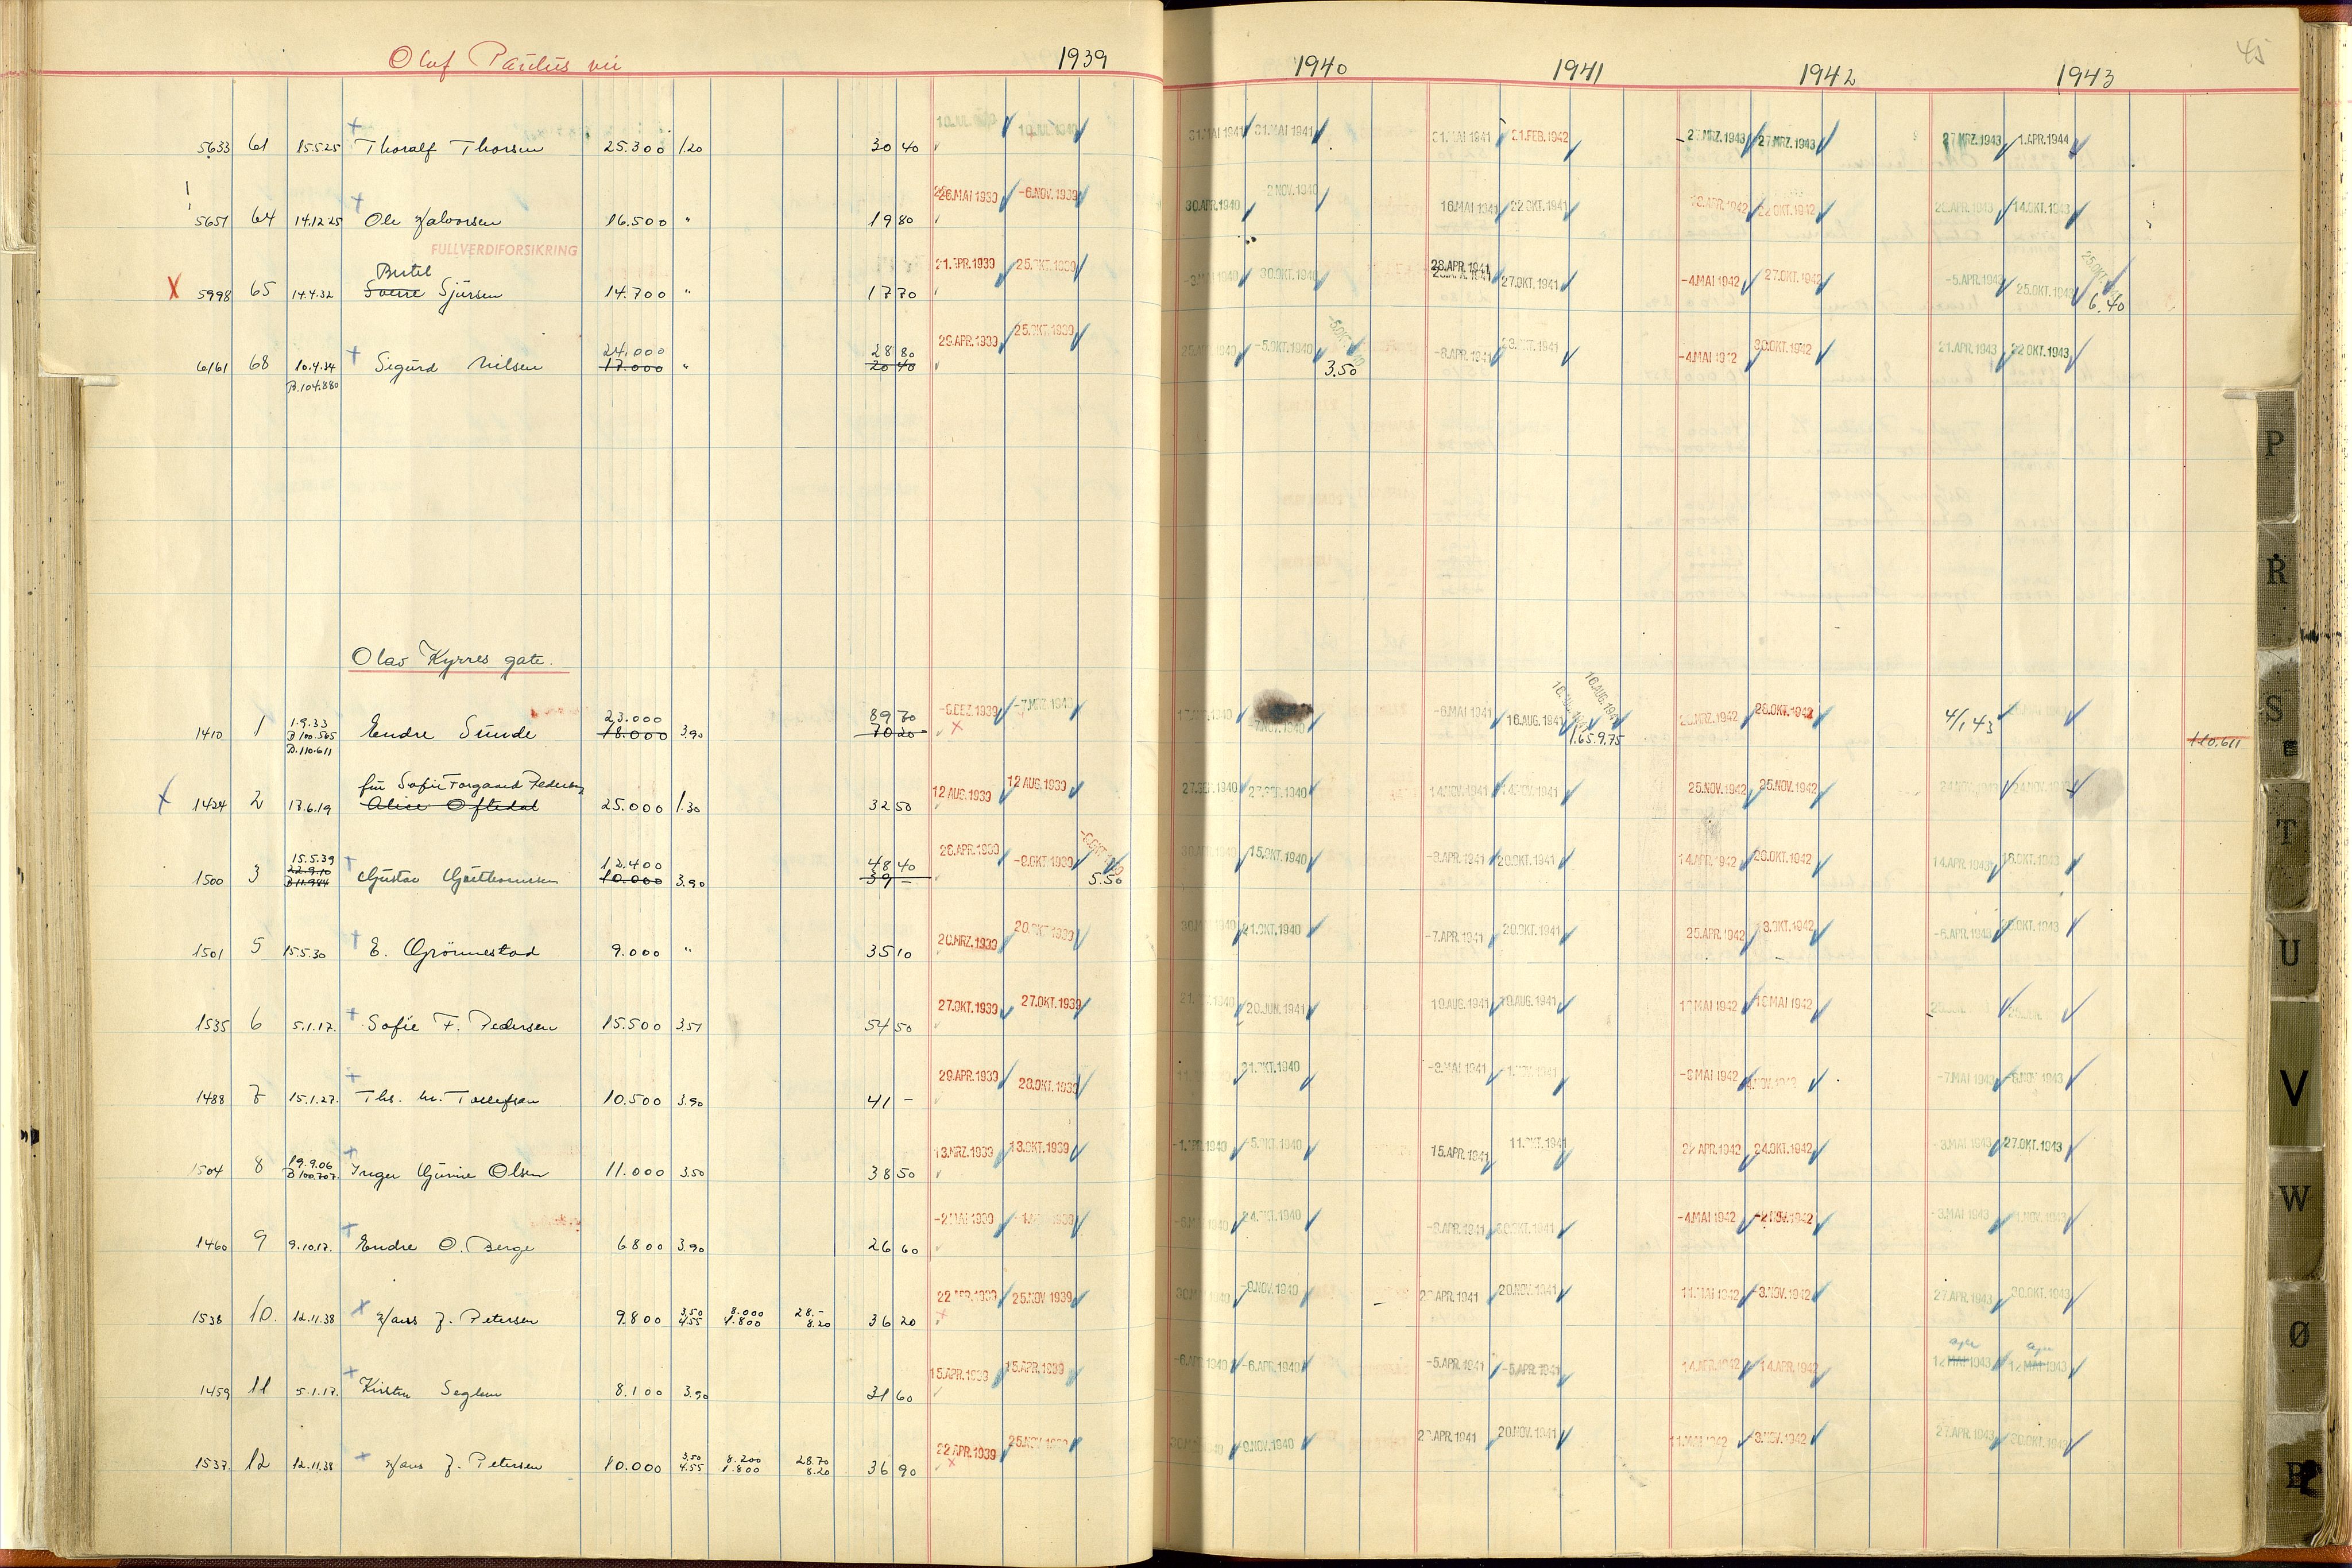 Olaf Paulus vei 1939 1940 1941 1942 1943 45
5633 61 15.5.25 Thoralf Thorsen 25.300 1.20 30 40 31.MAI 1941 31.MAI 1941 31.MAI 1941 21.FEB.1942 27.MRZ.1943 27.MRZ.1943 27.MRZ.1943 1.APR.1944
5651 64 14.12.25 Ole Halvorsen 16.500 " 19 80 26.MAI 1939 -6.NOV.1939 30.APR.1940 2 NOV.1940 16.MAI 1941 22 OKT.1941 22 OKT.1942 14.OKT.1943
FULLVERDIFORSIKRING
Bertel
X 5998 65 14.4.32 Sverre Sjursen 14.700 " 17 70 21.APR.1939 25.OKT.1939 30.OKT.1940 28.APR.1941 27.OKT.1941 -4.MAI 1942 27.OKT.1942 -5.APR.1943 25.OKT.1943 6.40
24.000 28 80
6161 68 10.4.34 Sigurd Nilsen 17.000 " 20 40 29.APR.1939 25.OKT.1939 -5.OKT.1940 3.50 -8.APR.1941 -4.MAI 1942 30.OKT.1942 21.APR.1943 22 OKT.1943
B.104.880
Olav Kyrres gate.
1.9.33 23.000 89 70
1410 1 B 100.565 Endre Sunde 18.000 3.90 70 20 -6.DEZ.1939 -7.MRZ.1940 -6.MAI 1941 16.AUG.1941 16.AUG.1941 1.65 9.75 26.OKT.1942 4/1 43 110.611
B.110.611
1424 2 17.6.19 Alice Oftedal 25.000 1.30 32 50 12 AUG.1939 12 AUG.1939 27.SEP.1940 27.SEP.1940 14.NOV.1941 14.NOV.1941 25.NOV.1942 25.NOV.1942 24.NOV.1943 24.NOV.1943
15.5.39 12.400 48 40
1500 3 22.9.10 Gustav 10.000 3.90 39 - 26.APR.1939 -9.OKT.1939 5.50 15.OKT.1940 -8.APR.1941 20.OKT.1941 14.APR.1942 26.OKT.1942 14.APR.1943 18.OKT.1943
B 11.944
1501 5 15.5.30 E. Grönnestad 9.000 " 35 10 20.MRZ.1939 20.OKT.1939 21.OKT.1940 -7.APR.1941 20.OKT.1941 25.APR.1942 -6.APR.1943
1535 6 5.1.17. Sofie F. Pedersen 15.500 3.51 54 50 27.OKT.1939 27.OKT.1939 20.JUN.1941 19.AUG.1941 19.AUG.1941 18 MAI 1942 18 MAI 1942
1488 7 15.1.27. Ths. M. Tollefsen 10.500 3.90 41 - 29.APR.1939 28.OKT.1939 21.OKT.1940 -8.MAI 1941 -9 MAI 1942 -7.MAI 1943 -6.NOV.1943
19.9.06
1504 8 B 100.707. Inger Gurine Olsen 11.000 3.50 38 50 13.MRZ.1939 13.OKT.1939 -1.APR.1940 -5.OKT.1940 15.APR.1941 11.OKT.1941 24.OKT.1942 -3.MAI 1943 27.OKT.1943
1460 9 9.10.17. Endre O. Berge 6800 3.90 26 60 -2 MAI 1939 24.OKT.1940 -8.APR.1941 -4.MAI 1942 -2 NOV.1942 -3.MAI 1943
3.50 8.000 28.-
1538 10. 12.11.38 Hans J. Petersen 9.800 4.55 1.800 8.20 36 20 22 APR.1939 25.NOV 1939 -9.NOV.1940 20.NOV.1941 11.MAI 1942 -3.NOV.1942 27.APR.1943 30.OKT.1943
1459 11 5.1.17. Kirsten Seglem 8.100 3.90 31 60 15.APR.1939 15.APR.1939 -6.APR.1940 -6.APR.1940 -5.APR.1941 -5.APR.1941 14.APR.1942 14.APR.1942 12 MAI 1943 12 MAI 1943
3.50 8.200 28.70
1537. 12 12.11.38 Hans J. Petersen 10.000 4.55 1.800 8.20 36 90 22 APR.1939 25.NOV 1939 -9.NOV.1940 20.NOV.1941 11.MAI 1942 -3.NOV.1942 27.APR.1943
P
R
S
T
U
V
W
Ø